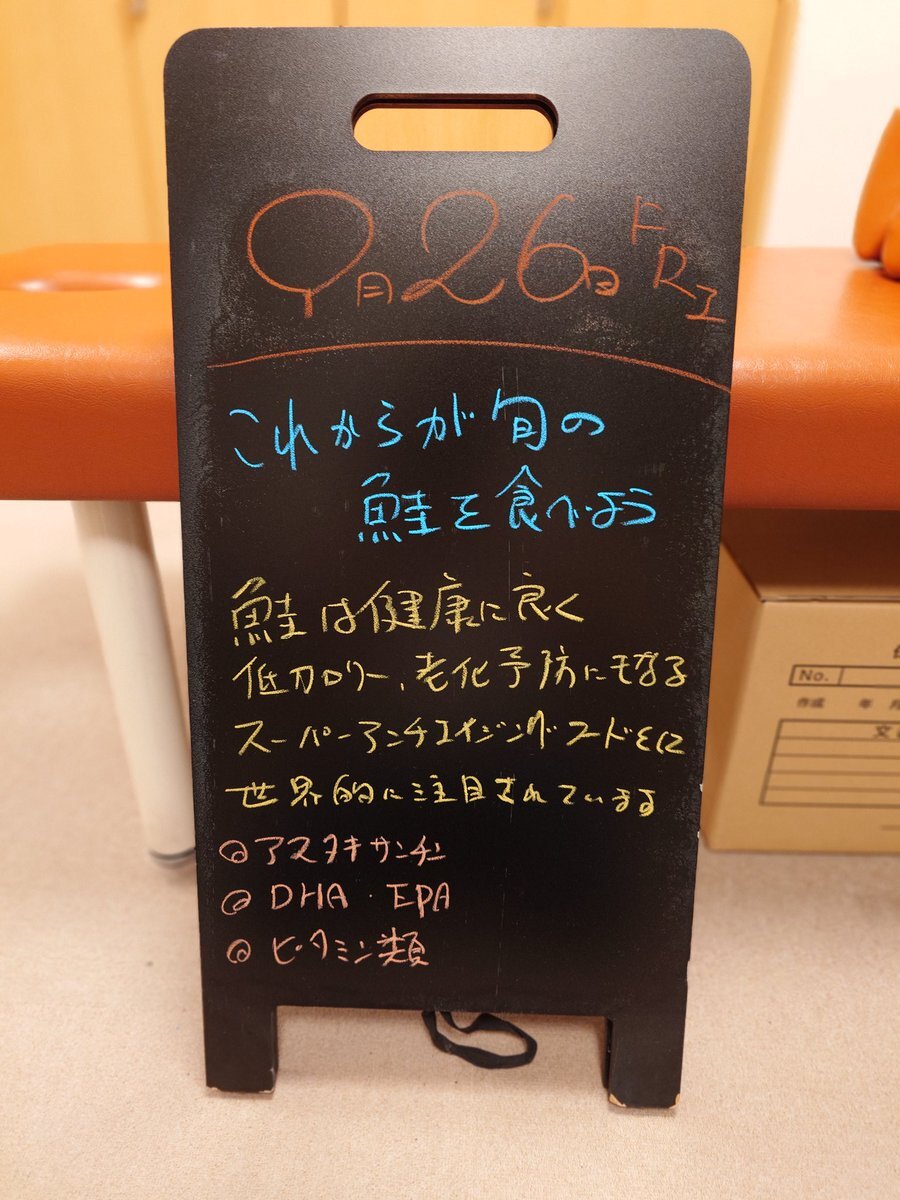 9月26日 FRI
これからが旬の
鮭を食べよう
鮭は健康に良く
低カロリー、老化予防にもなる
スーパーアンチエイジングフードとに
世界的に注目されている
◎アスタキサンチン
◎DHA・EPA
◎ビタミン類
No.
作成 年 月